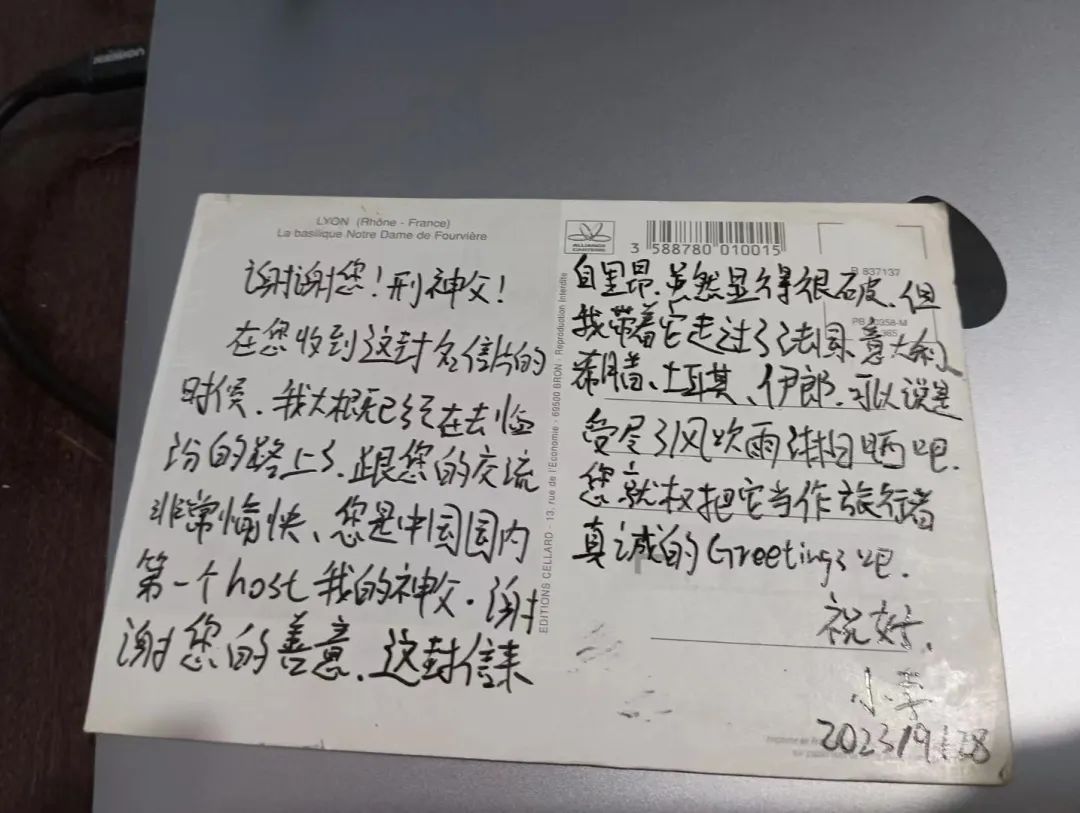 LYON (Rhône - France)
La basilique Notre Dame de Fourvière
谢谢您！刑神父！
在您收到这封名信片的
时候、我大概已经在去临
汾的路上了、跟您的交流
非常愉快、您是中国国内
第一个host我的神父．谢
谢您的善意、这封信来
EDITIONS CELLARD - 13, rue de l'Economie - 69500 BRON - Reproduction Interdite
ALLIANCE
CARTERIE
3 588780 010015
837137
自里昂、虽然显得很破、但
我带着它走过了法国、意大利、
希腊、土耳其、伊郎、可以说是
受尽了风吹雨淋日晒吧．
您就权把它当作旅行者
真诚的Greetings吧．
祝好、
小李
2023/9/28